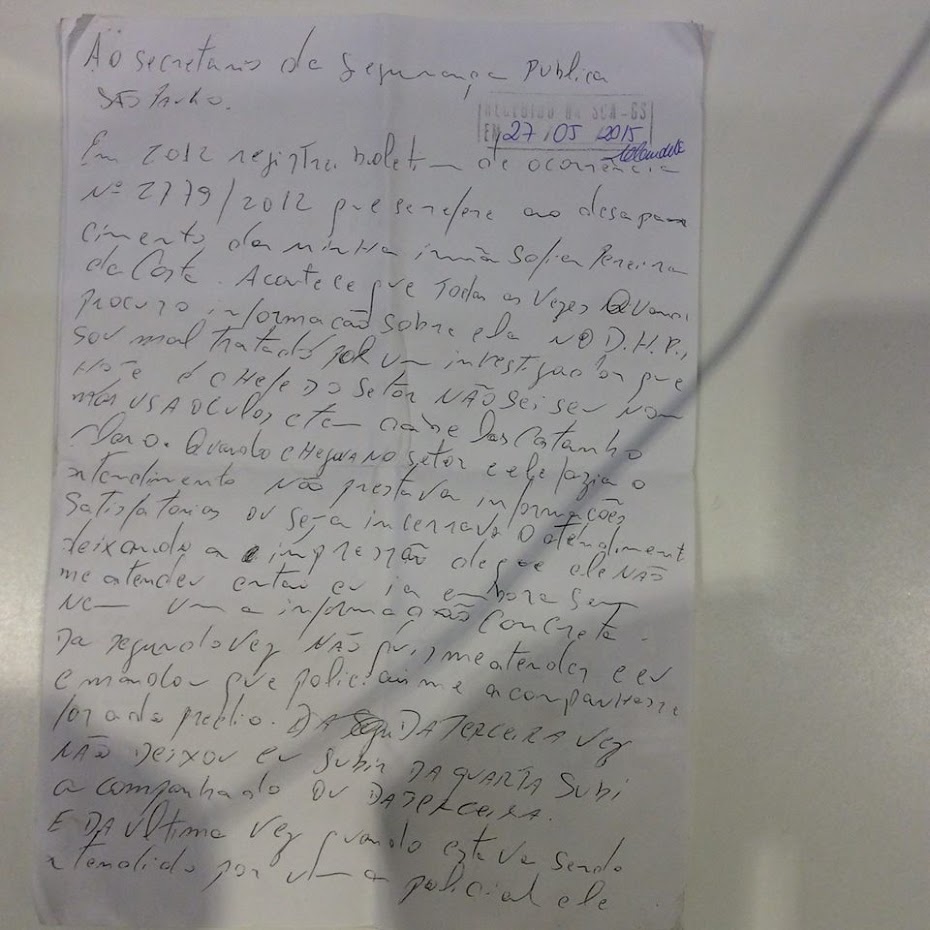 Ao secretario da Segurança Publica
São Paulo.
RECEBIDO NA
EM 27/05/2015
Em 2012 registra boletim de ocorrência
Nº 2779/2012 que se refere ao desapa
cimento da minha irmã Pereira
da Costa. Acontece que todas as vezes Quando
procuro informação sobre ela NO D.H.P.,
sou mal tratado por um investigador que
HOJE é CHEFE DO setor NÃO sei seu nom
mas USA OCULOS e tem
claro. Quando chegava NO setor e ele fazia o
atendimento NÃO prestava informações
satisfatorias OU seja incerrava O atendiment
deixando a impressão de que ele NÃO
me atendeu então eu ia embora sem
nem uma informação concreta.
DA segunda vez NÃO quis me atender e eu
e mandou que policiais me acompanhasse
fora do predio. DA DA TERCEIRA vez
NÃO DEIXOU eu subir DA QUARTA SUBI
acompanhado OU DA TERCEIRA.
E DA ultima vez quando estava sendo
atendido por uma policial ele